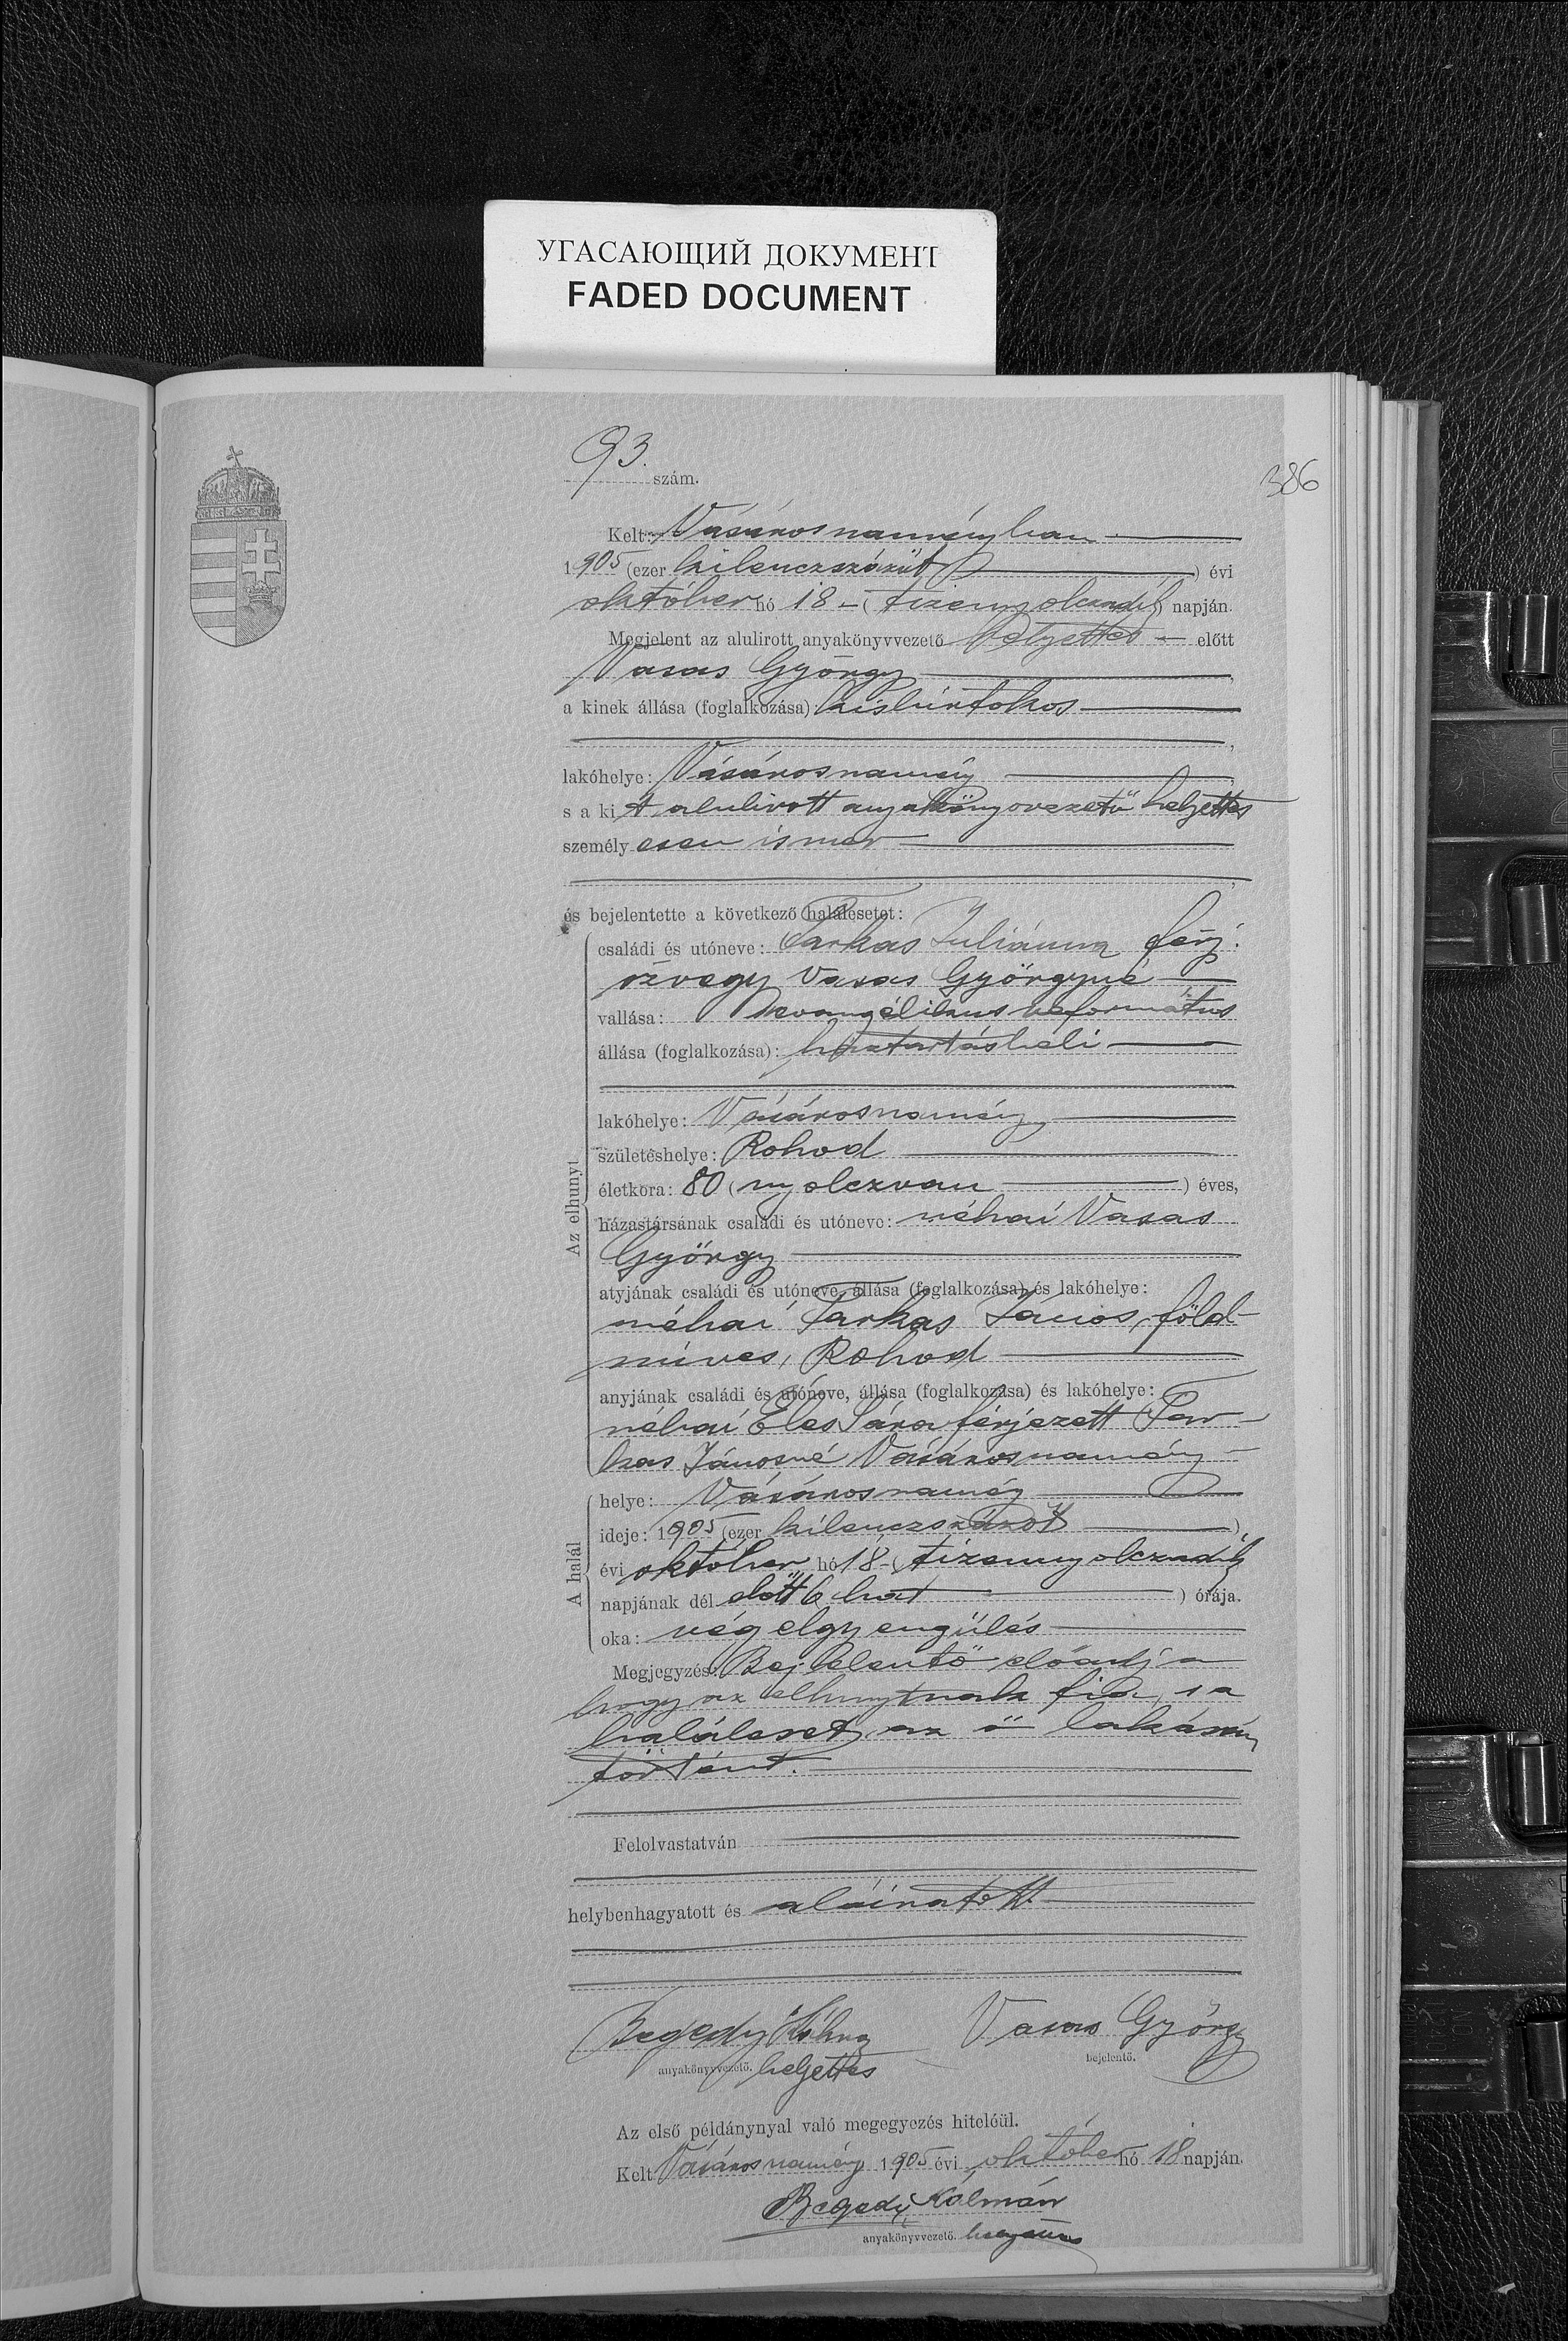 УГАСАЮЩИЙ ДОКУМЕНТ
FADED DOCUMENT
93. szám.
386
Kelt: Vásárosnaményban
1905 (ezer kilenczszázöt) évi
október hó 18 - (tizennyolczadik) napján.
Megjelent az alulirott anyakönyvvezető helyettes előtt
Vasas György,
a kinek állása (foglalkozása): kisbirtokos
lakóhelye: Vásárosnamény,
s a kit alulirott anyakönyvvezető helyettes
személyesen ismer
és bejelentette a következő halálesetet:
Az elhunyt
családi és utóneve: Farkas Juliánna férj.
özvegy Vasas Györgyné
vallása: evangélikus református
állása (foglalkozása): háztartásbeli
lakóhelye: Vásárosnamény
születéshelye: Rohod
életkora: 80 (nyolczvan) éves,
házastársának családi és utóneve: néhai Vasas
György
atyjának családi és utóneve, állása (foglalkozása) és lakóhelye:
néhai Farkas János, föld-
míves, Rohod
anyjának családi és utóneve, állása (foglalkozása) és lakóhelye:
néhai Éles Sára férjezett Far-
kas Jánosné Vásárosnamény -
A halál
helye: Vásárosnamény
ideje: 1905 (ezer kilenczszázöt)
évi október hó 18 - (tizennyolczadik
napjának dél előtt 6 hat) órája.
oka: végelgyengülés
Megjegyzés: Bejelentő előadja
hogy az elhunytnak fia, s a
haláleset az ő lakásán
történt.
Felolvastatván
helybenhagyatott és aláiratott.
Begedy Kálmán Vasas György
anyakönyvvezető. helyettes bejelentő.
Az első példánynyal való megegyezés hiteléül.
Kelt Vásárosnamény 1905 évi október hó 18 napján.
Begedy Kálmán
anyakönyvvezető. helyettes